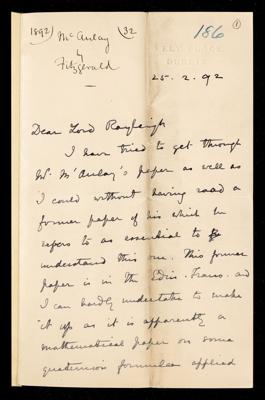 1892) McAulay (32
by
Fitzgerald
186
1
ELY PLACE,
DUBLIN.
25. 2. 92
Dear Lord Rayleigh
I have tried to get through
Mr. McAulay's paper as well as
I could without having read a
former paper of his which he
refers to as essential to
understand this one. This former
paper is in the Edin. Trans. and
I can hardly undertake to make
it up as it is apparently a
mathematical paper on some
quaternion formulae applied